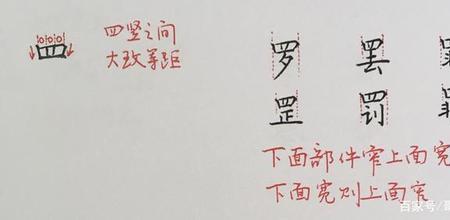 四竖之间
大致等距
罒
罗 罢
罡 罚
下面部件窄上面宽
下面宽则上面窄
百家号/